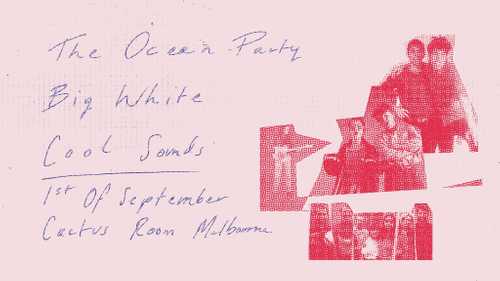 The Ocean Party
Big White
Cool Sounds
1st Of September
Cactus Room Melbourne